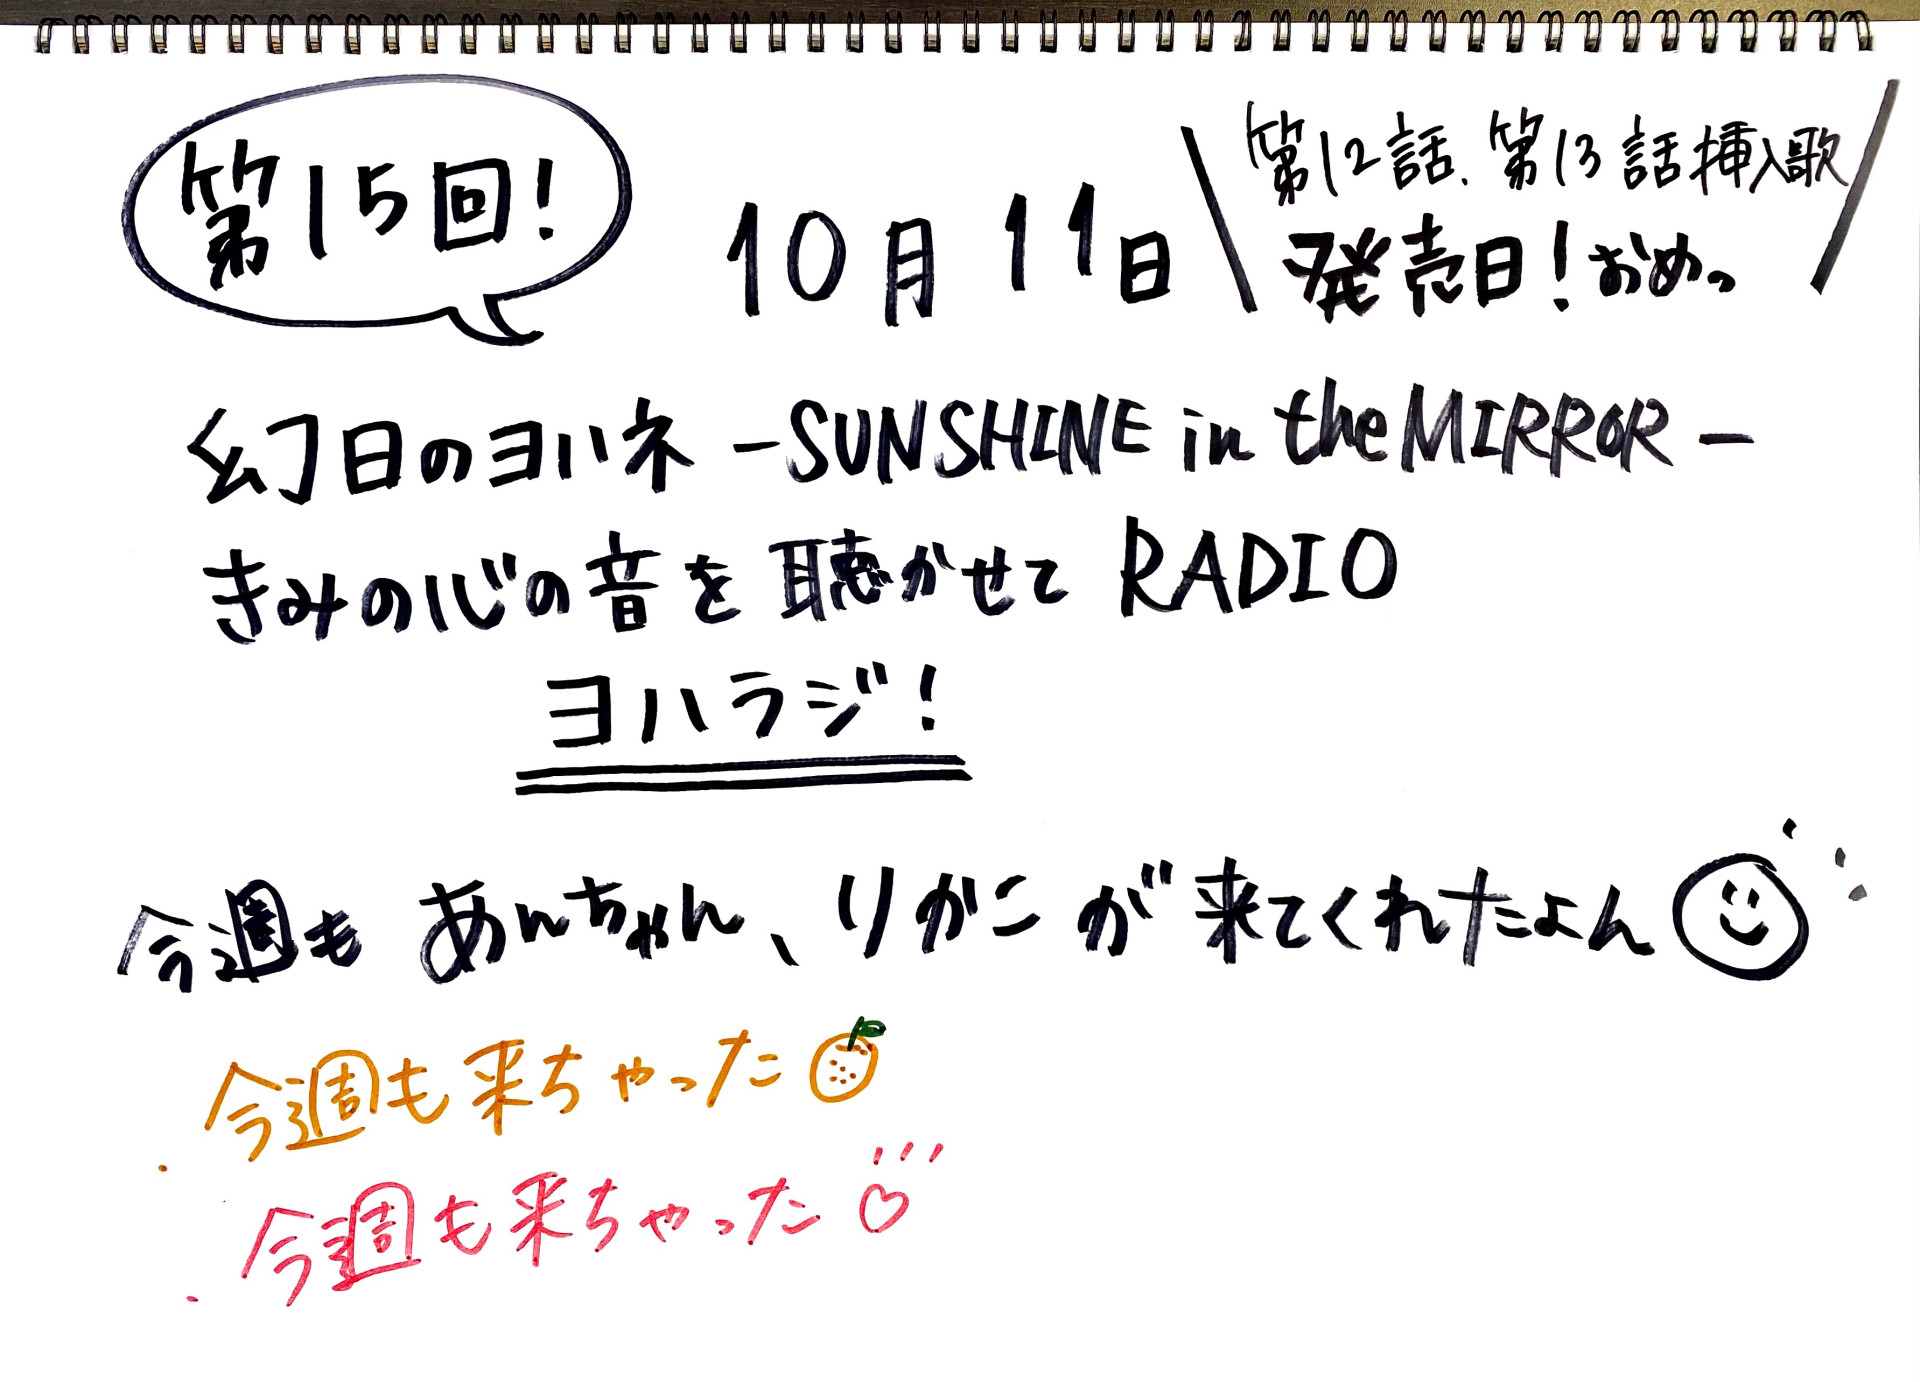 第15回!
10月11日
第12話、第13話挿入歌
発売日!おめっ
幻日のヨハネ -SUNSHINE in the MIRROR-
きみの心の音を聴かせて RADIO
ヨハラジ!
今週も あんちゃん、りかこ が 来てくれたよん
今週も来ちゃった
今週も来ちゃった